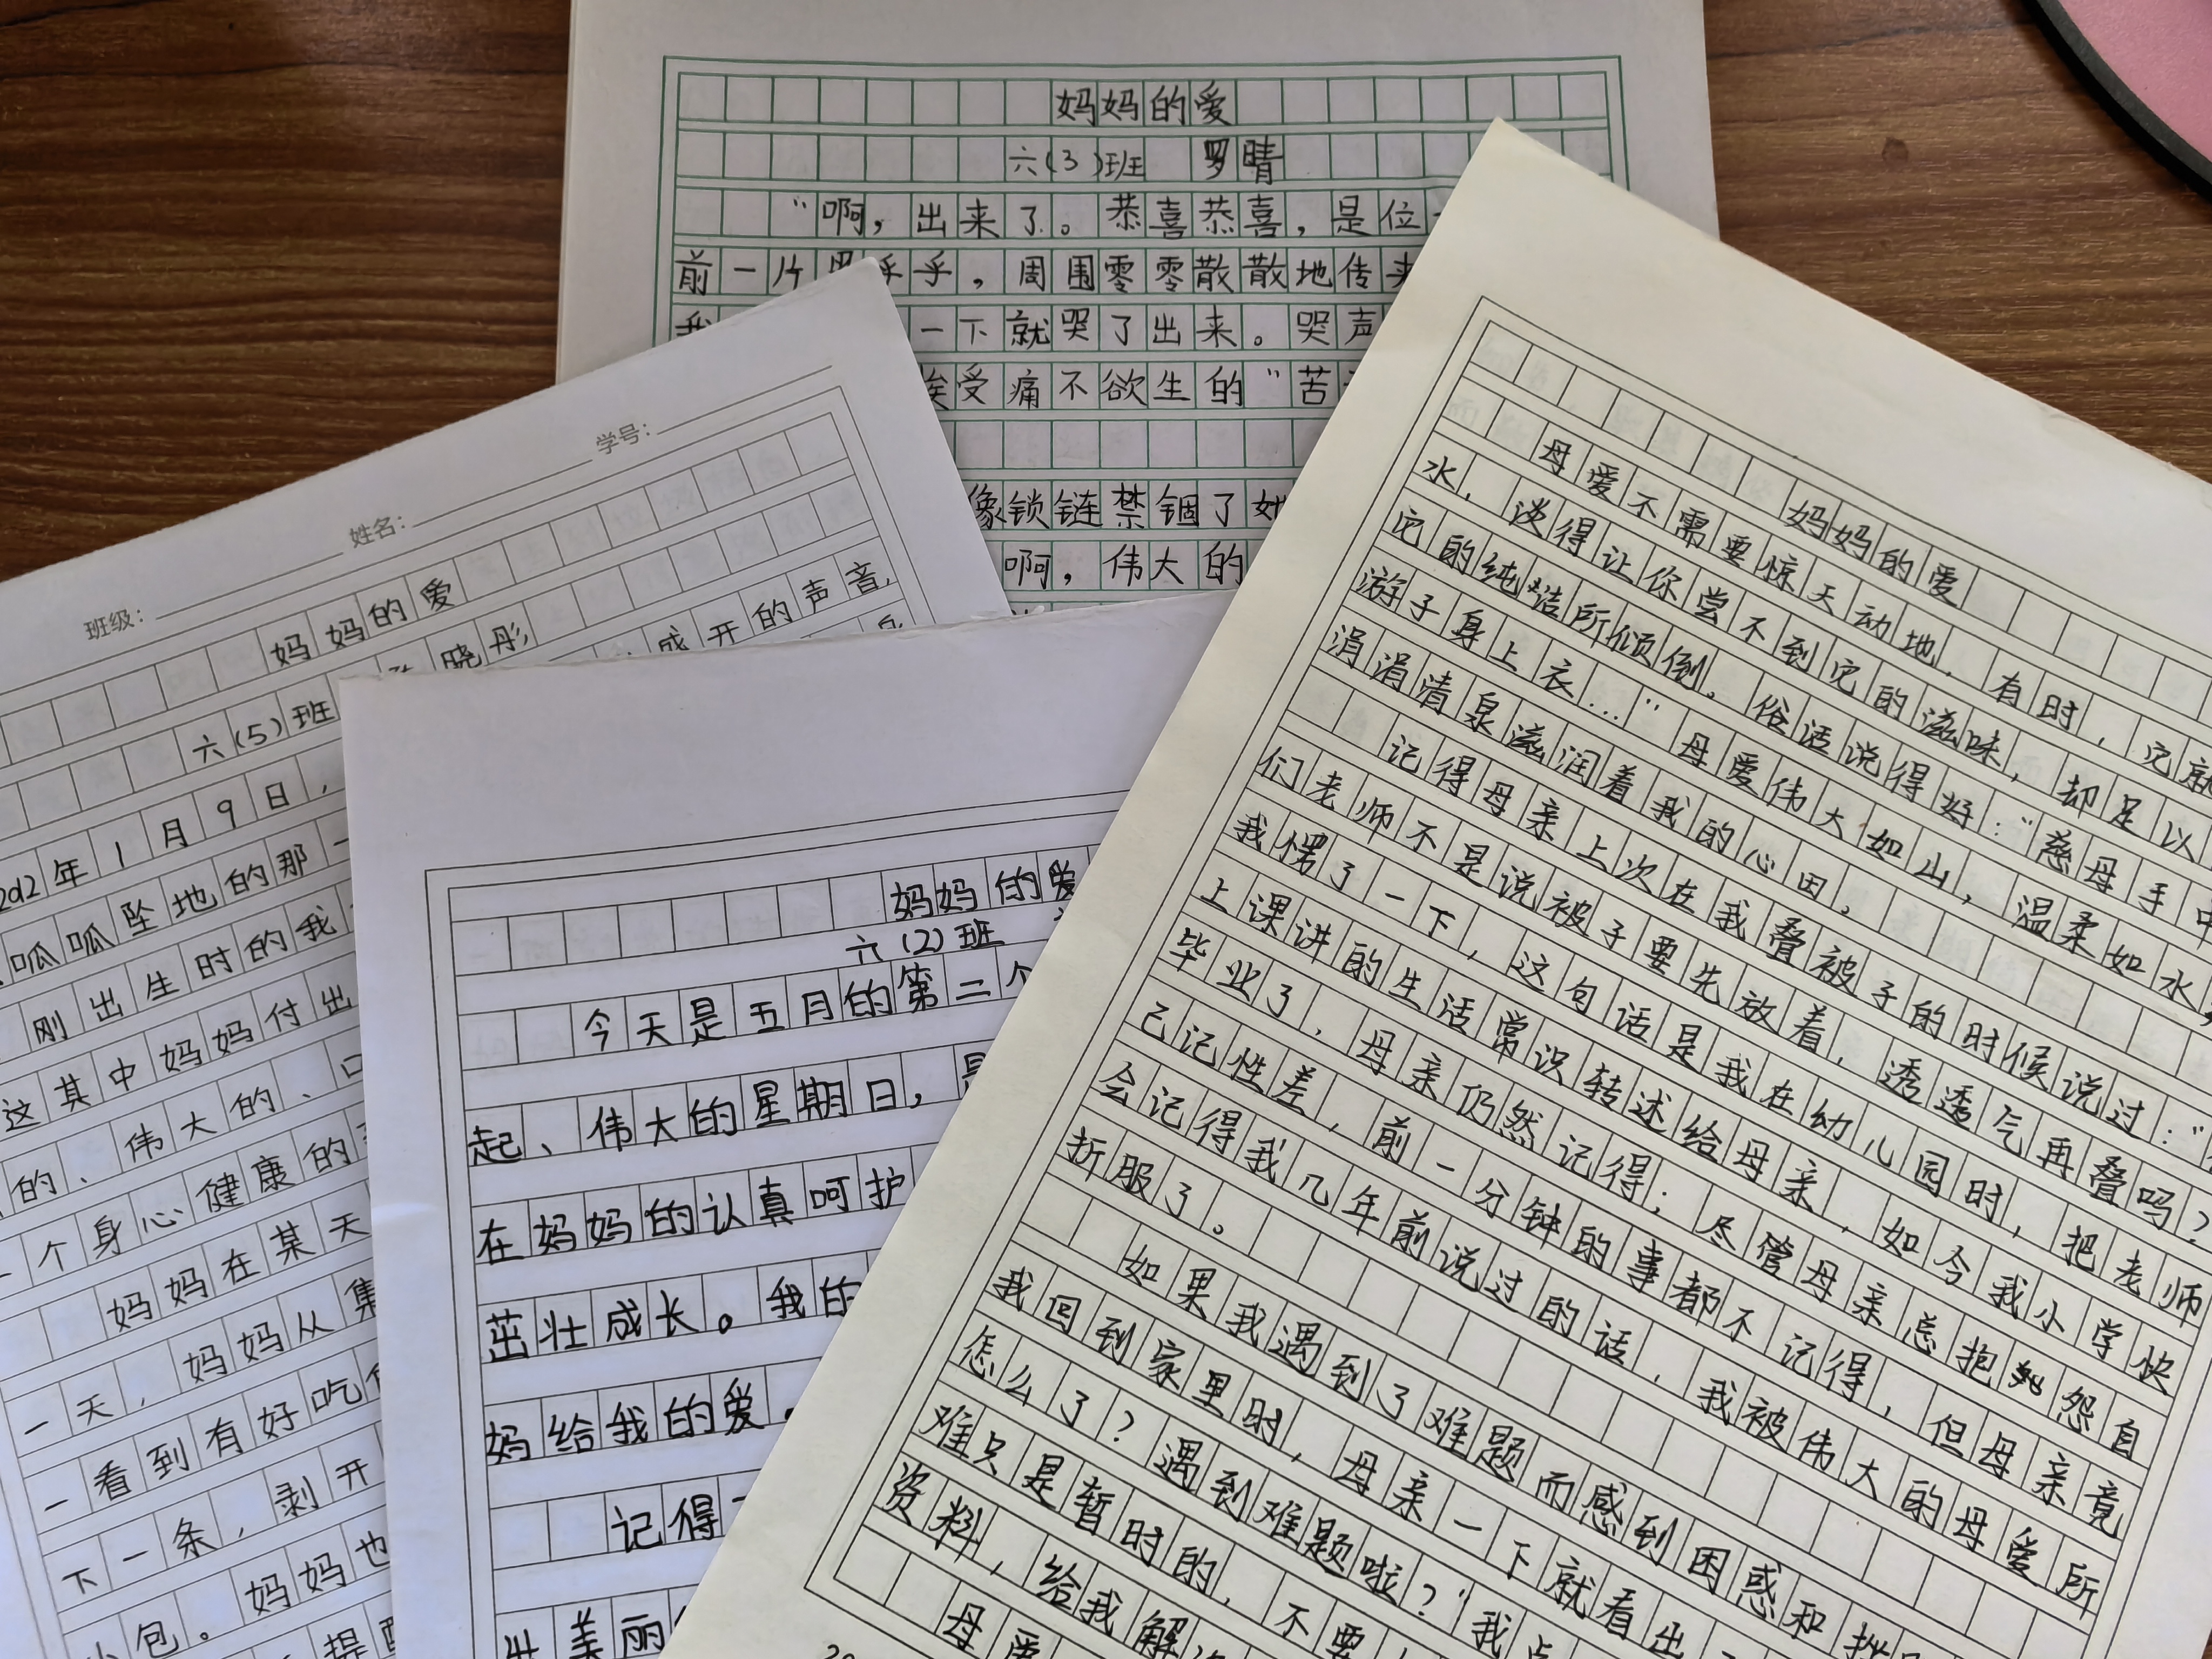 妈妈的爱
六(3)班 罗晴
“啊，出来了。恭喜恭喜，是位
前一片 乎，周围零零散散地传来
我 一下就哭了出来。哭声
挨受痛不欲生的“苦
像锁链禁锢了她
啊，伟大的
班级： 姓名： 学号：
妈妈的爱
六(5)班 晓彤
年1月9日， 盛开的声音，
呱呱坠地的那一
刚出生时的我
这其中妈妈付出
的、伟大的、
一个身心健康的
妈妈在某天
一天，妈妈从集
一看到有好吃
下一条，剥开
小包。妈妈也
提醒
妈妈的爱
六(2)班
今天是五月的第二个
起、伟大的星期日，是
在妈妈的认真呵护
茁壮成长。我的
妈给我的爱。
记得
出美丽
妈妈的爱
母爱不需要惊天动地，有时，它就
水，淡得让你尝不到它的滋味，却足以
它的纯洁所倾倒。俗话说得好：“慈母手中
游子身上衣…”母爱伟大如山，温柔如水，
涓涓清泉滋润着我的心田。
记得母亲上次在我叠被子的时候说过：“
们老师不是说被子要先放着，透透气再叠吗？
我愣了一下，这句话是我在幼儿园时，把老师
上课讲的生活常识转述给母亲，如今我小学快
毕业了，母亲仍然记得；尽管母亲总抱怨自
己记性差，前一分钟的事都不记得，但母亲竟
会记得我几年前说过的话，我被伟大的母爱所
折服了。
如果我遇到了难题而感到困惑和挫
我回到家里时，母亲一下就看出
怎么了？遇到难题啦？”我点
难只是暂时的，不要
资料，给我解
母爱